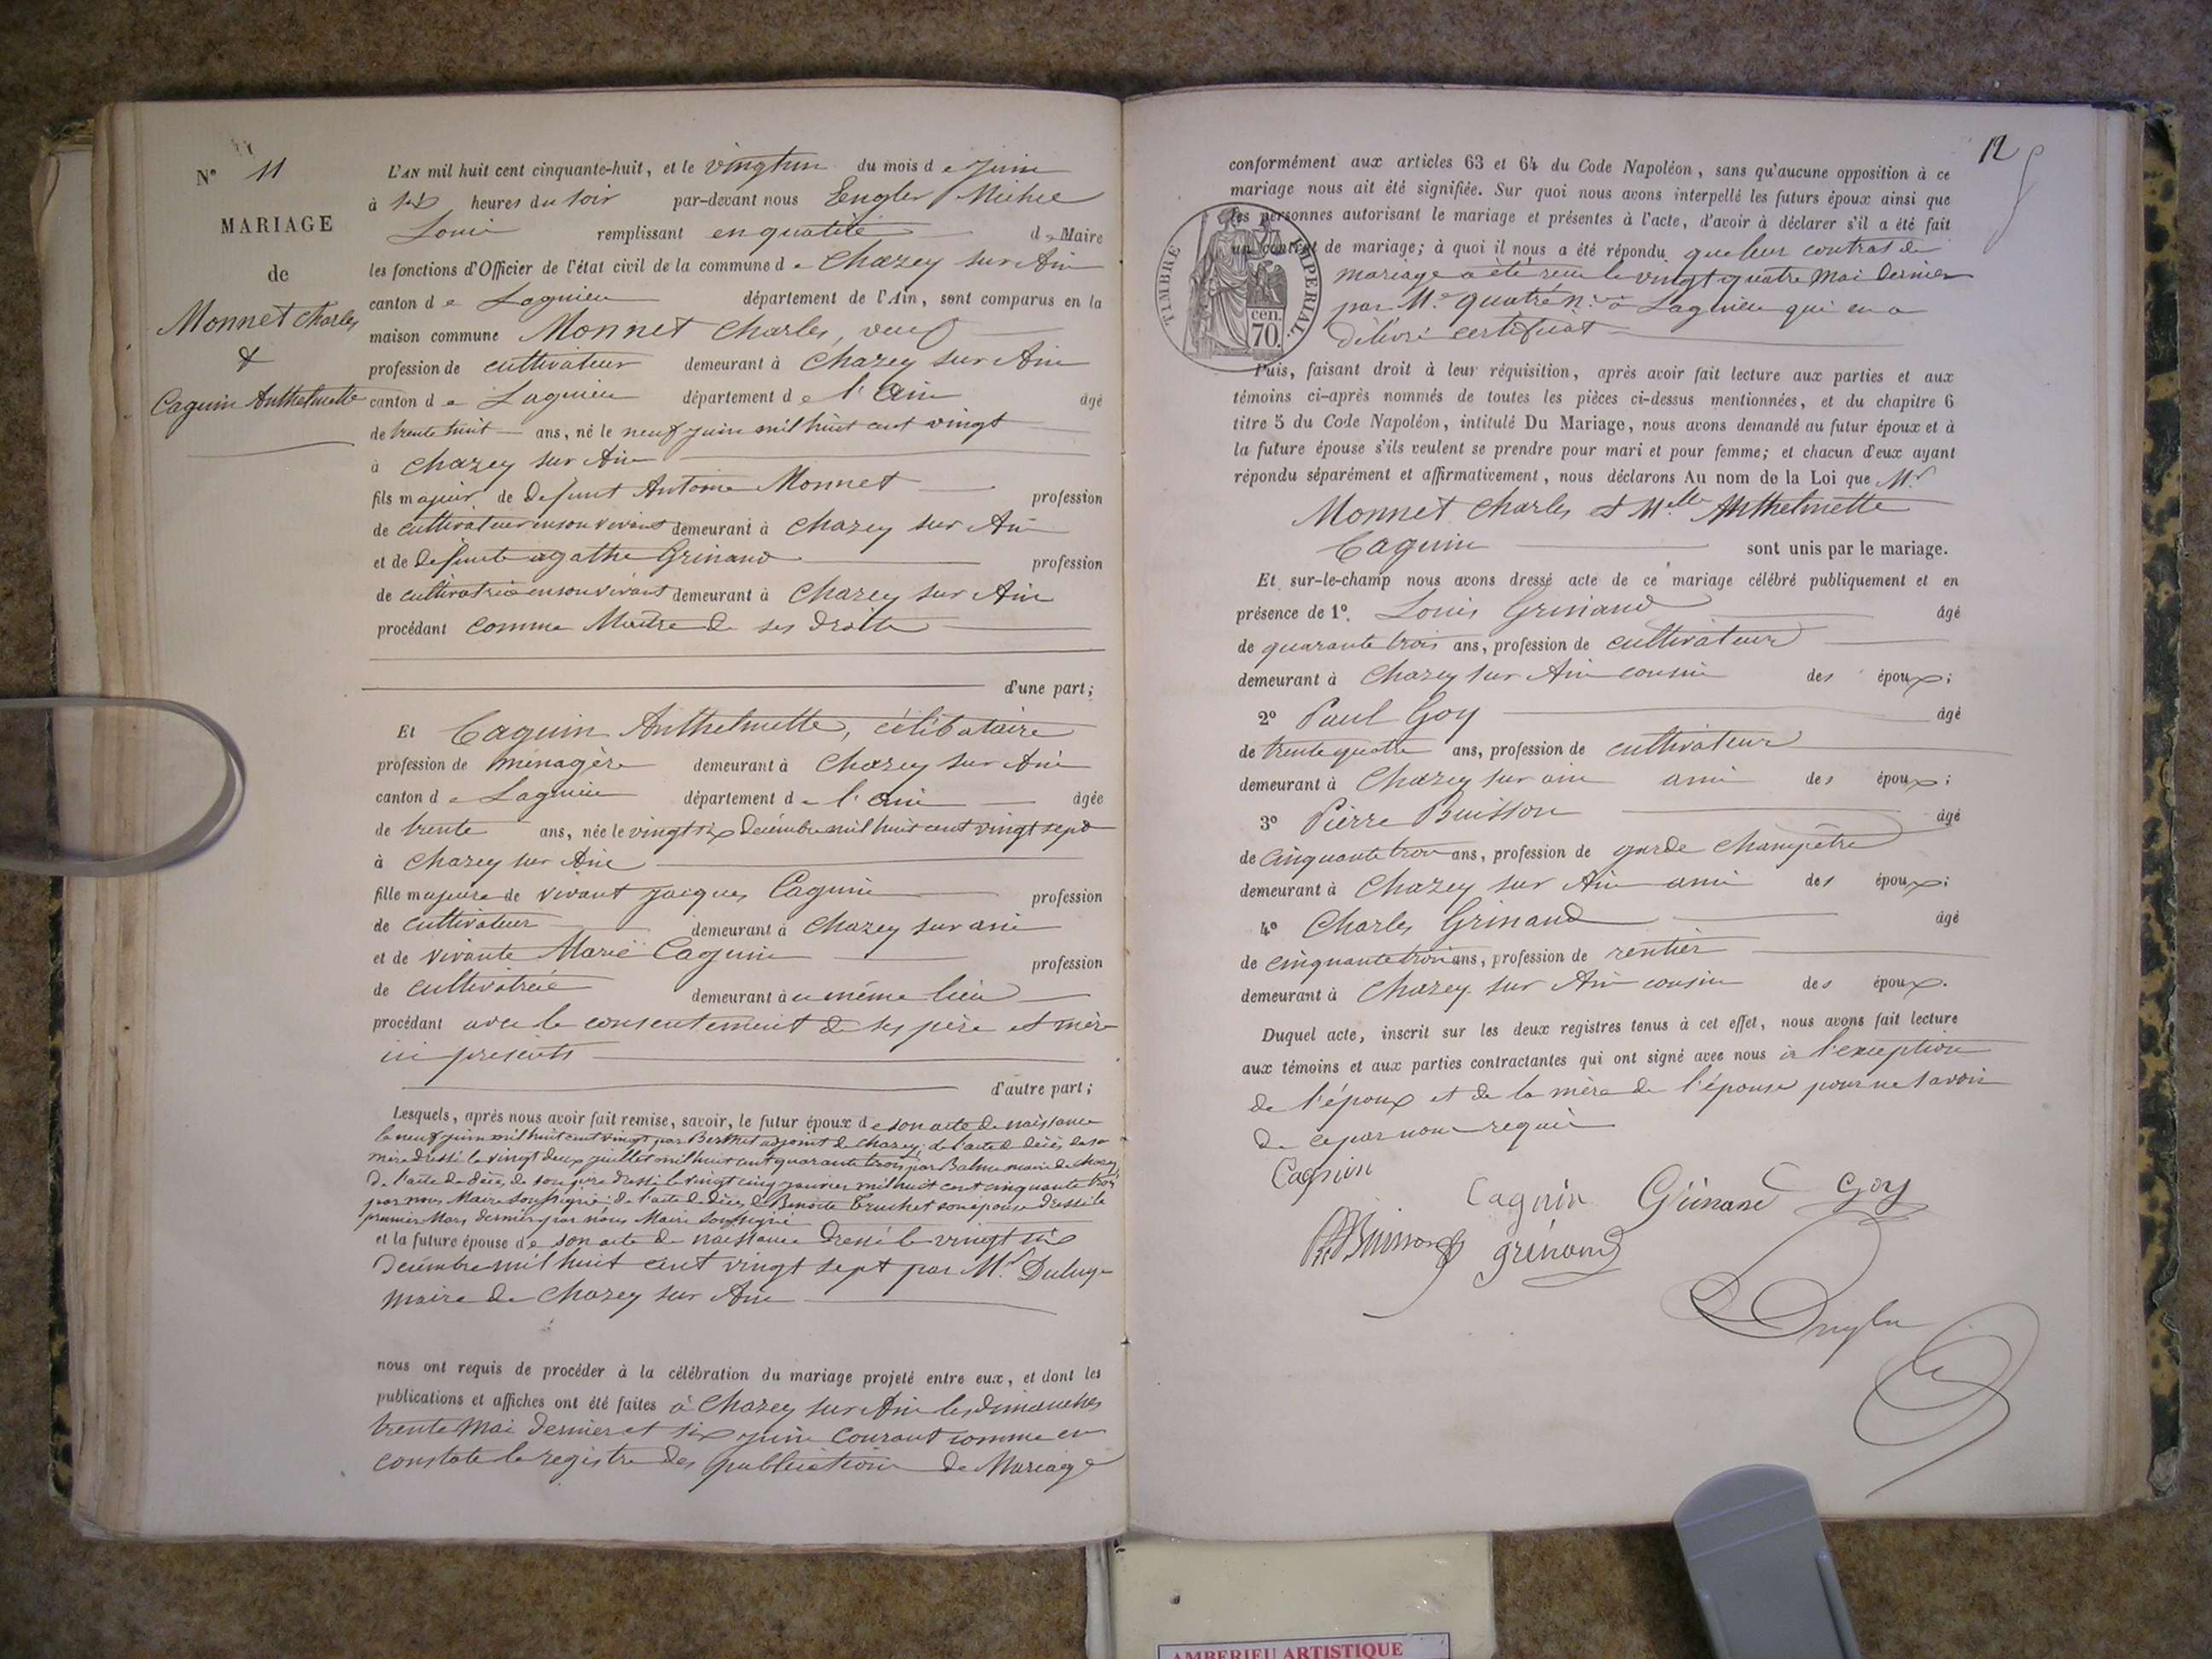 N° 11
MARIAGE
de
Monnet Charles
&
Caguin Anthelmette
L'AN mil huit cent cinquante-huit, et le vingt un du mois de Juin
à six heures du soir par-devant nous Engler Michel
Louis remplissant en qualité de Maire
les fonctions d'Officier de l'état civil de la commune de Chazey sur Ain
canton de Lagnieu département de l'Ain, sont comparus en la
maison commune Monnet Charles, veuf
profession de cultivateur demeurant à Chazey sur Ain
canton de Lagnieu département de l'Ain âgé
de trente huit ans, né le neuf juin mil huit cent vingt
à Chazey sur Ain
fils majeur de défunt Antoine Monnet profession
de cultivateur en son vivant demeurant à Chazey sur Ain
et de défunte agathe Grinand profession
de cultivatrice en son vivant demeurant à Chazey sur Ain
procédant comme Maître de ses droits
d'une part;
Et Caguin Anthelmette, célibataire
profession de ménagère demeurant à Chazey sur Ain
canton de Lagnieu département de l'Ain âgée
de trente ans, née le vingt six décembre mil huit cent vingt sept
à Chazey sur Ain
fille majeure de vivant jacques Caguin profession
de cultivateur demeurant à Chazey sur ain
et de vivante Marie Caguin profession
de cultivatrice demeurant à ce même lieu
procédant avec le consentement de ses père et mère
ici présents
d'autre part;
Lesquels, après nous avoir fait remise, savoir, le futur époux de son acte de naissance
le neuf juin mil huit cent vingt par Berthet adjoint de Chazey; de l'acte de décès de sa
mère dressé le vingt deux juillet mil huit cent quarante trois par Balme maire de Chazey
De l'acte de décès de son père dressé le vingt cinq janvier mil huit cent cinquante trois
par nous Maire soussigné; de l'acte de décès de Benoite Truchet son épouse dressé le
premier Mars dernier par nous Maire soussigné
et la future épouse de son acte de naissance dressé le vingt six
décembre mil huit cent vingt sept par Mr
maire de Chazey sur Ain
nous ont requis de procéder à la célébration du mariage projeté entre eux, et dont les
publications et affiches ont été faites à Chazey sur Ain les dimanches
trente Mai dernier et six juin courant comme en
constate le registre des publications de Mariage
12
conformément aux articles 63 et 64 du Code Napoléon, sans qu'aucune opposition à ce
mariage nous ait été signifiée. Sur quoi nous avons interpellé les futurs époux ainsi que
les personnes autorisant le mariage et présentes à l'acte, d'avoir à déclarer s'il a été fait
un contrat de mariage; à quoi il nous a été répondu que leur contrat de
mariage a été reçu le vingt quatre Mai dernier
par Me quatré Nre à Lagnieu qui en a
délivré certificat
TIMBRE IMPERIAL
cen.
70.
Puis, faisant droit à leur réquisition, après avoir fait lecture aux parties et aux
témoins ci-après nommés de toutes les pièces ci-dessus mentionnées, et du chapitre 6
titre 5 du Code Napoléon, intitulé Du Mariage, nous avons demandé au futur époux et à
la future épouse s'ils veulent se prendre pour mari et pour femme; et chacun d'eux ayant
répondu séparément et affirmativement, nous déclarons Au nom de la Loi que Mr
Monnet Charles & Melle Anthelmette
Caguin sont unis par le mariage.
Et sur-le-champ nous avons dressé acte de ce mariage célébré publiquement et en
présence de 1°. Louis Grinand âgé
de quarante trois ans, profession de cultivateur
demeurant à Chazey sur Ain cousin des époux;
2° Paul Goy âgé
de trente quatre ans, profession de cultivateur
demeurant à Chazey sur ain ami des époux;
3° Pierre Buisson âgé
de cinquante trois ans, profession de garde champêtre
demeurant à Chazey sur Ain ami des époux;
4° Charles Grinand âgé
de cinquante trois ans, profession de rentier
demeurant à Chazey sur Ain cousin des époux.
Duquel acte, inscrit sur les deux registres tenus à cet effet, nous avons fait lecture
aux témoins et aux parties contractantes qui ont signé avec nous à l'exception
de l'époux et de la mère de l'épouse pour ne savoir
de ce par nous requis
Cagnin
Cagnin Grinand Goy
Buisson grinand
Engler
AMBERIEU ARTISTIQUE